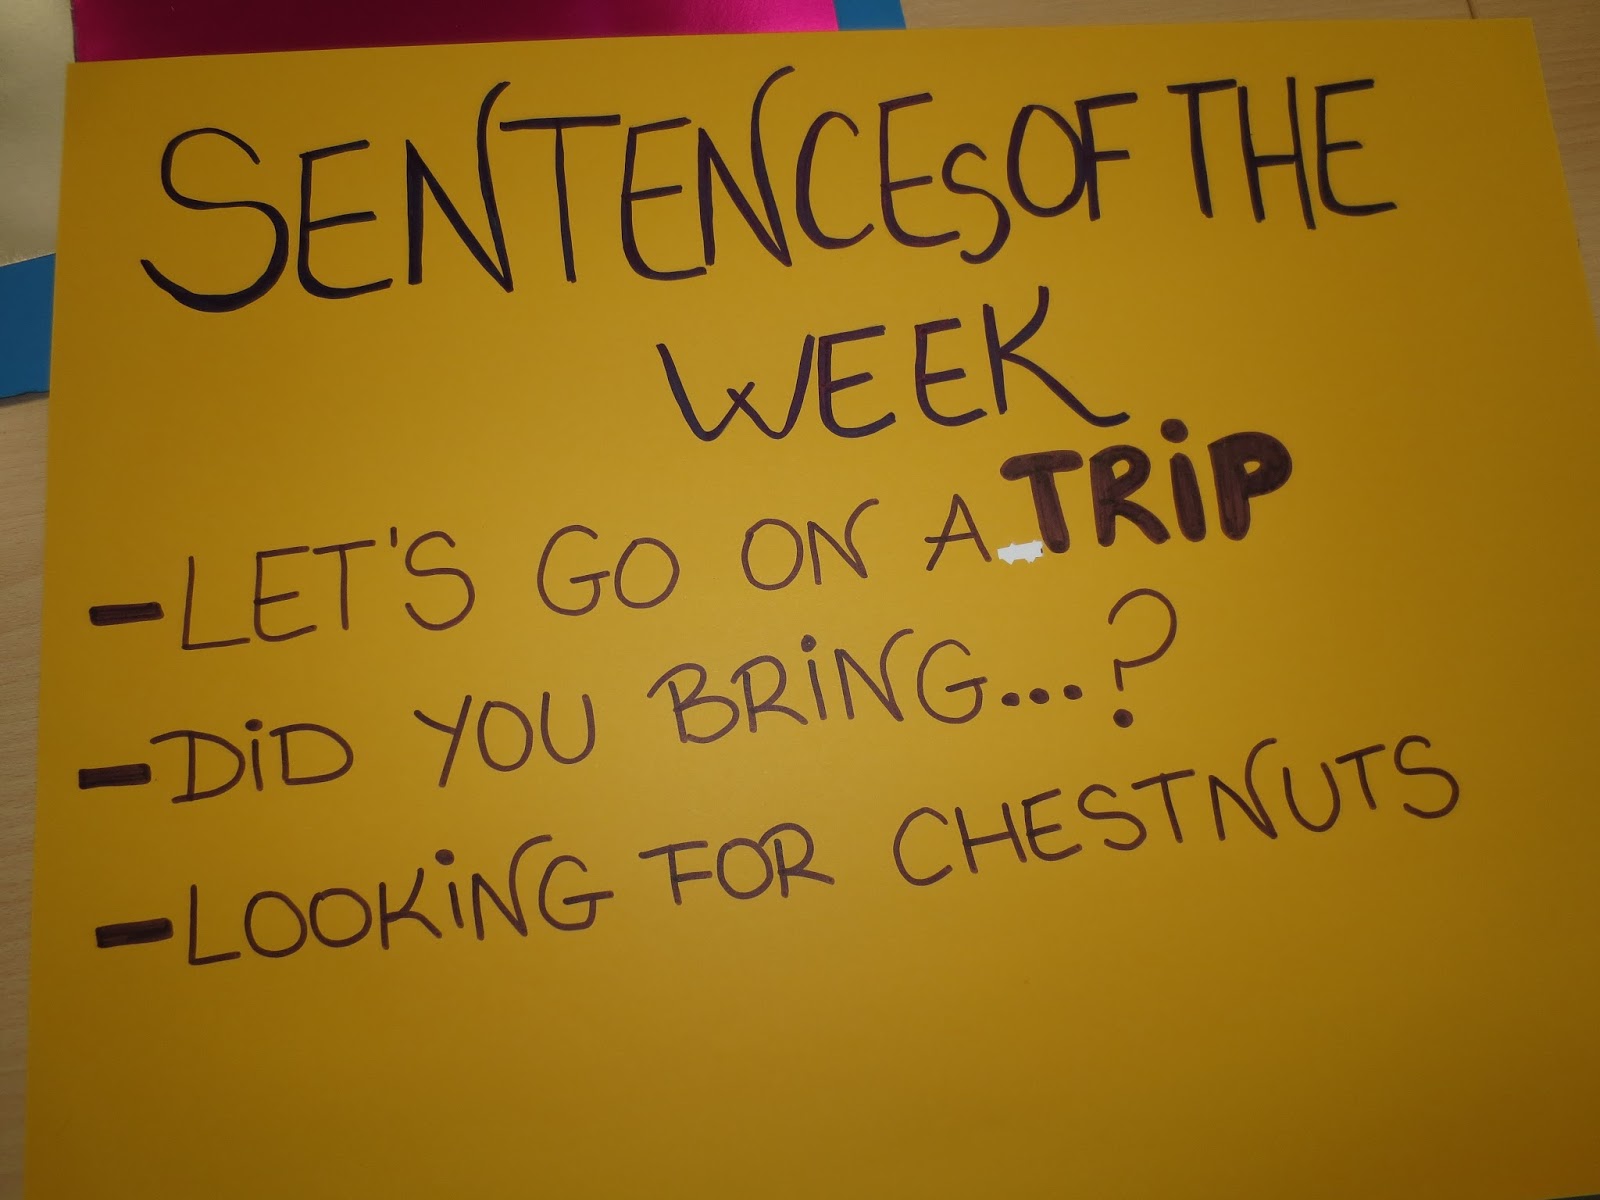 SENTENCES OF THE
WEEK
-LET'S GO ON A TRiP
-DiD YOU BRiNG...?
-LOOKiNG FOR CHESTNUTS